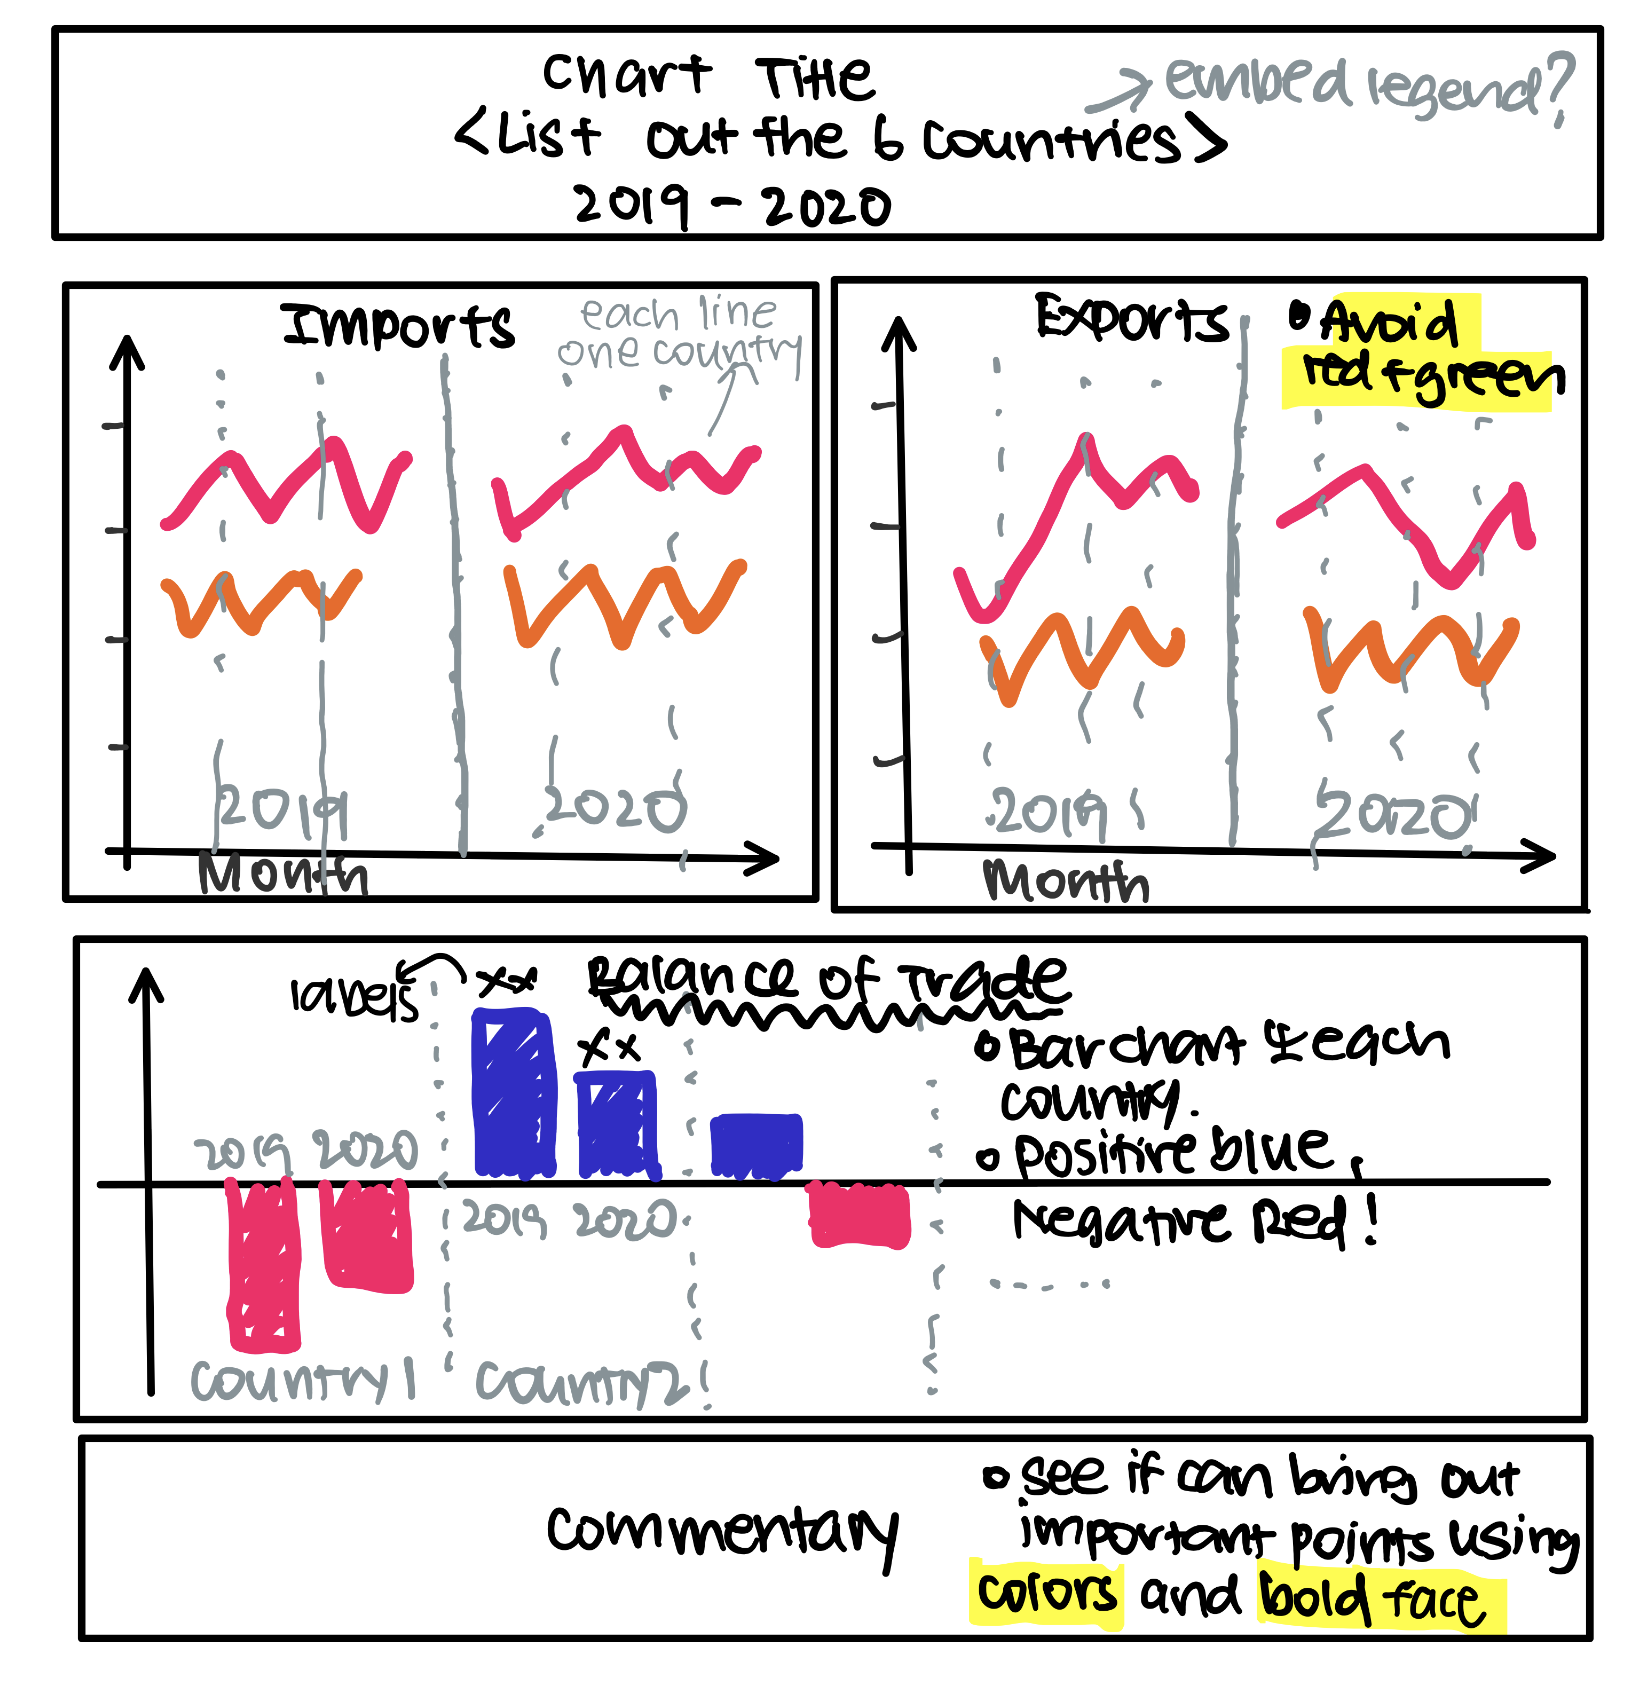 Chart Title
→ embed legend?
<List out the 6 countries>
2019 - 2020
Imports
each line
one country
2019
2020
Month
Exports
• Avoid
red + green
2019
2020
Month
Balance of Trade
labels
xx
xx
2019 2020
2019 2020
country 1
country 2
• Bar chart 4 each
country.
• positive blue,
Negative Red!
commentary
• see if can bring out
important points using
colors and bold face